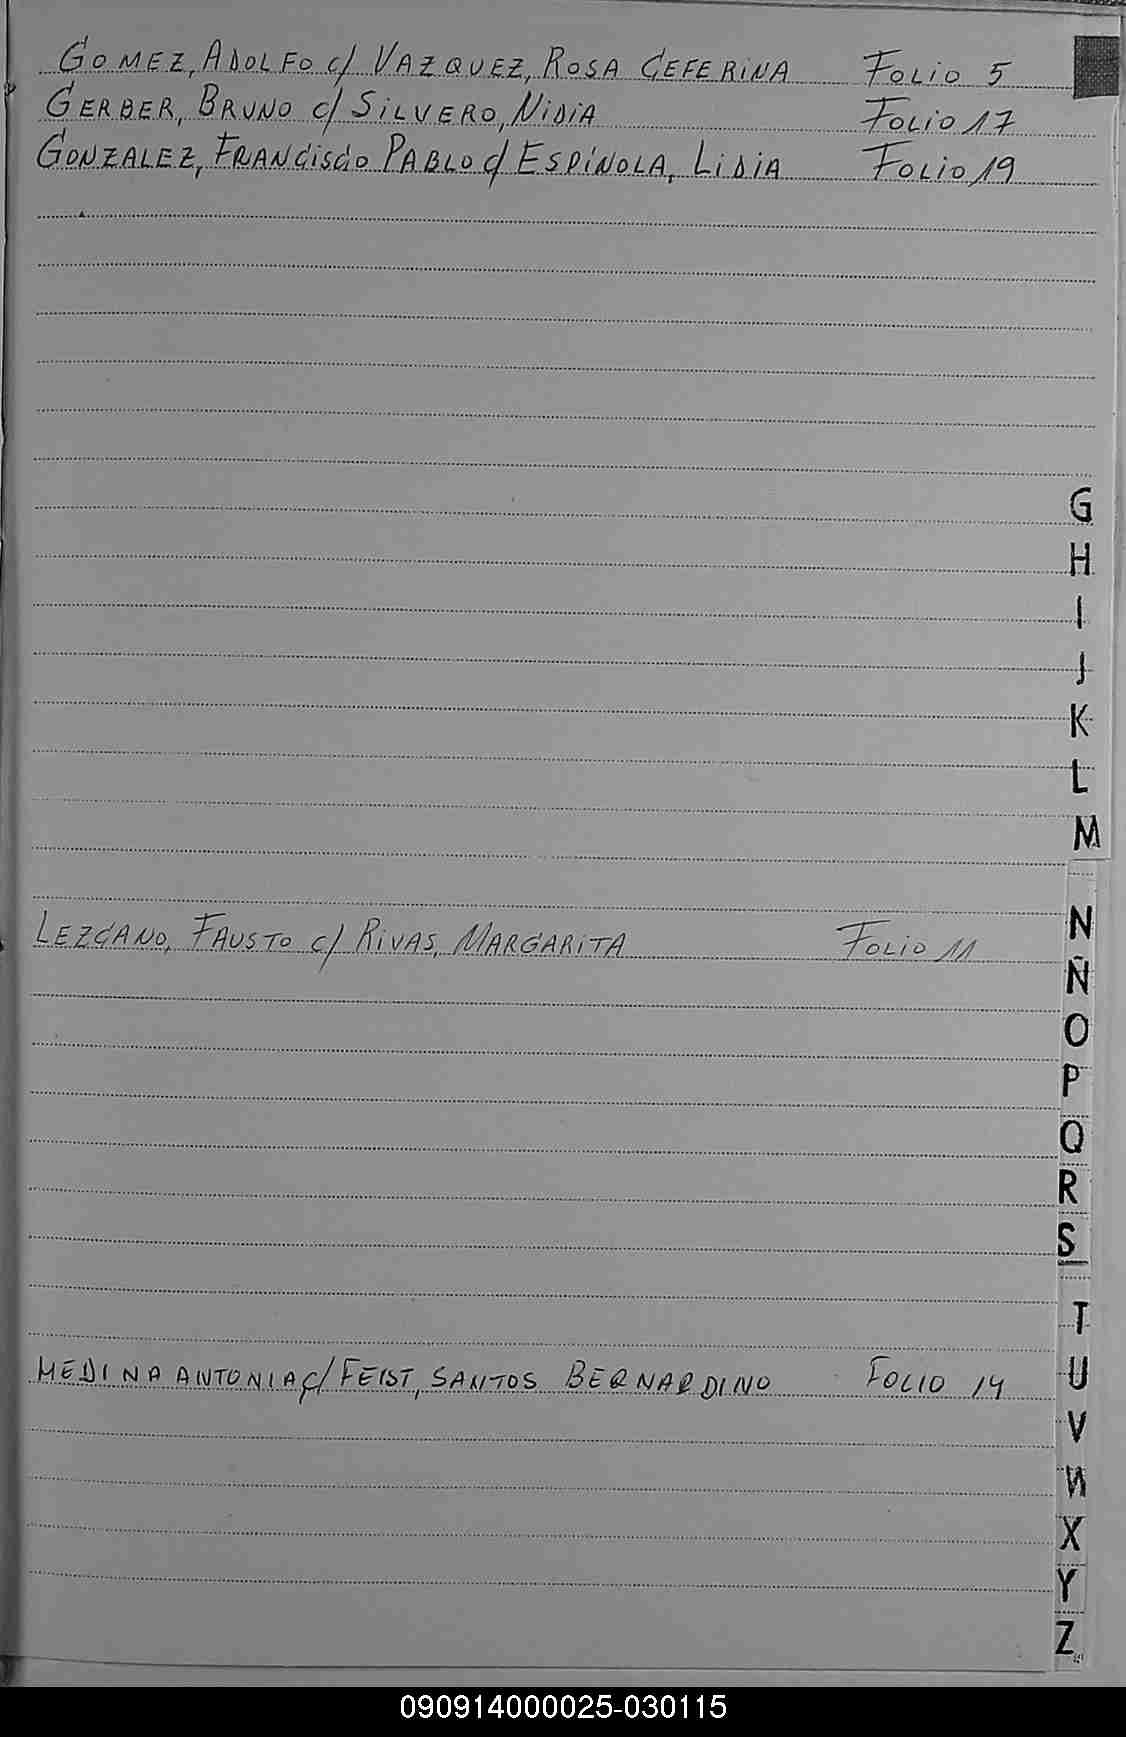 GOMEZ, ADOLFO c/ VAZQUEZ, ROSA CEFERINA FOLIO 5
GERBER, BRUNO c/ SILVERO, NIDIA FOLIO 17
GONZALEZ, FRANCISCO PABLO c/ ESPÍNOLA, LIDIA FOLIO 19
G
H
I
J
K
L
M
LEZCANO, FAUSTO c/ RIVAS, MARGARITA FOLIO 11
N
Ñ
O
P
Q
R
S
T
MEDINA ANTONIA c/ FEIST, SANTOS BERNARDINO FOLIO 14
U
V
W
X
Y
Z
090914000025-030115